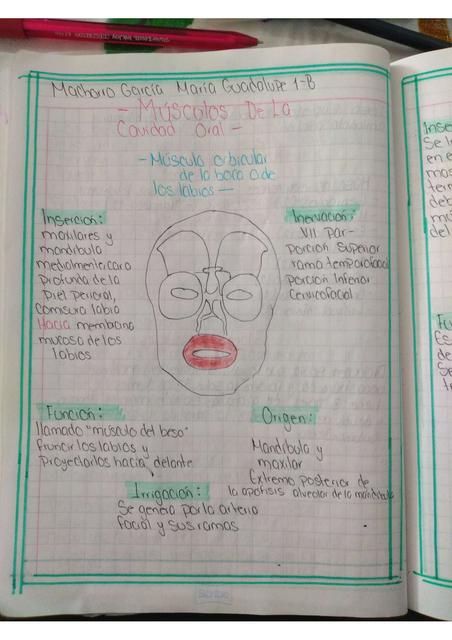 Machorro García María Guadalupe 1-B
- Músculos De La
Cavidad Oral -
- Músculo orbicular
de la boca o de
los labios -
Inserción:
maxilares y
mandíbula
medialmente cara
profunda de la
piel perioral,
Comisura labio
Hacia membrana
mucosa de los
labios
Inervación:
VII Par-
Porción Superior
rama temporofacial
porción Inferior
Cervicofacial
Función:
llamado "músculo del beso"
fruncir los labios y
Proyectarlos hacia delante
Origen:
Mandíbula y
maxilar
Extremo posterior de
la apófisis alveolar de la mandíbula
Irrigación:
Se genera por la arteria
facial y sus ramas
Scribe
Inse
Se i
en e
mas
term
deb
mú
del
Fu
Es
de
Se